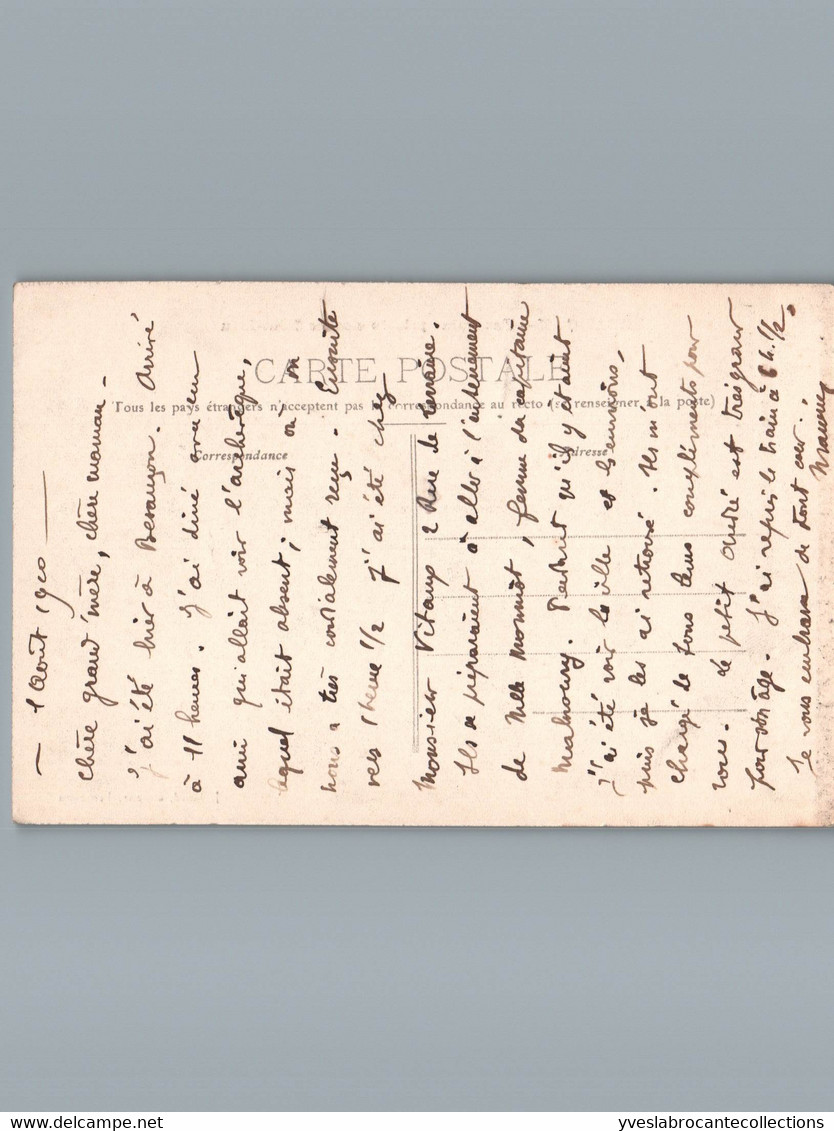 — 1 Août 1910 —
Chère grand'mère, chère maman –
J'ai été hier à Besançon. Arrivé
à 11 heures. J'ai diné avec un
ami qui allait voir l'archevêque,
lequel était absent ; mais on
nous a très cordialement reçu. Ensuite
vers 1 heure 1/2 j'ai été chez
Monsieur Vitaux 2 Rue de Lorraine.
Ils se préparaient à aller à l'enterrement
de Melle Monniot, femme du capitaine
Malnoury. Pendant qu'ils y étaient
j'ai été voir la ville et les environs,
puis je les ai retrouvé. Ils m'ont
chargé de tous leurs compliments pour
vous. Le petit André est très grand
pour son âge. J'ai repris le train à 6 h. 1/2.
Je vous embrasse de tout cœur.
CARTE POSTALE
Tous les pays étrangers n'acceptent pas la correspondance au recto (se renseigner à la poste)
Correspondance
Adresse
yveslabrocantecollections